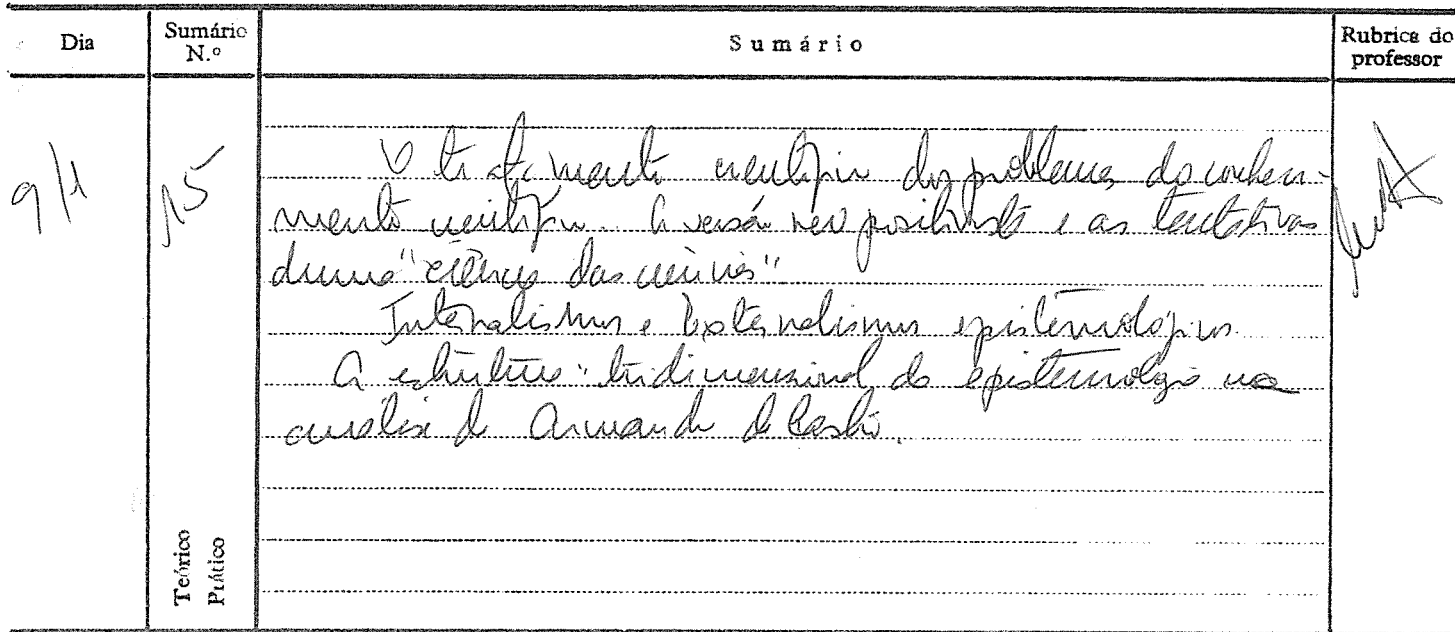 Dia
Sumário N.º
Sumário
Rubrica do professor
9/1
15
O tratamento científico dos problemas do conheci-
mento científico. A versão neopositivista e as tentativas
duma "ciência das ciências"
Internalismo e Externalismo epistemológicos.
A estrutura "tridimensional da epistemologia na
análise de Armando de Castro.
Teórico
Prático